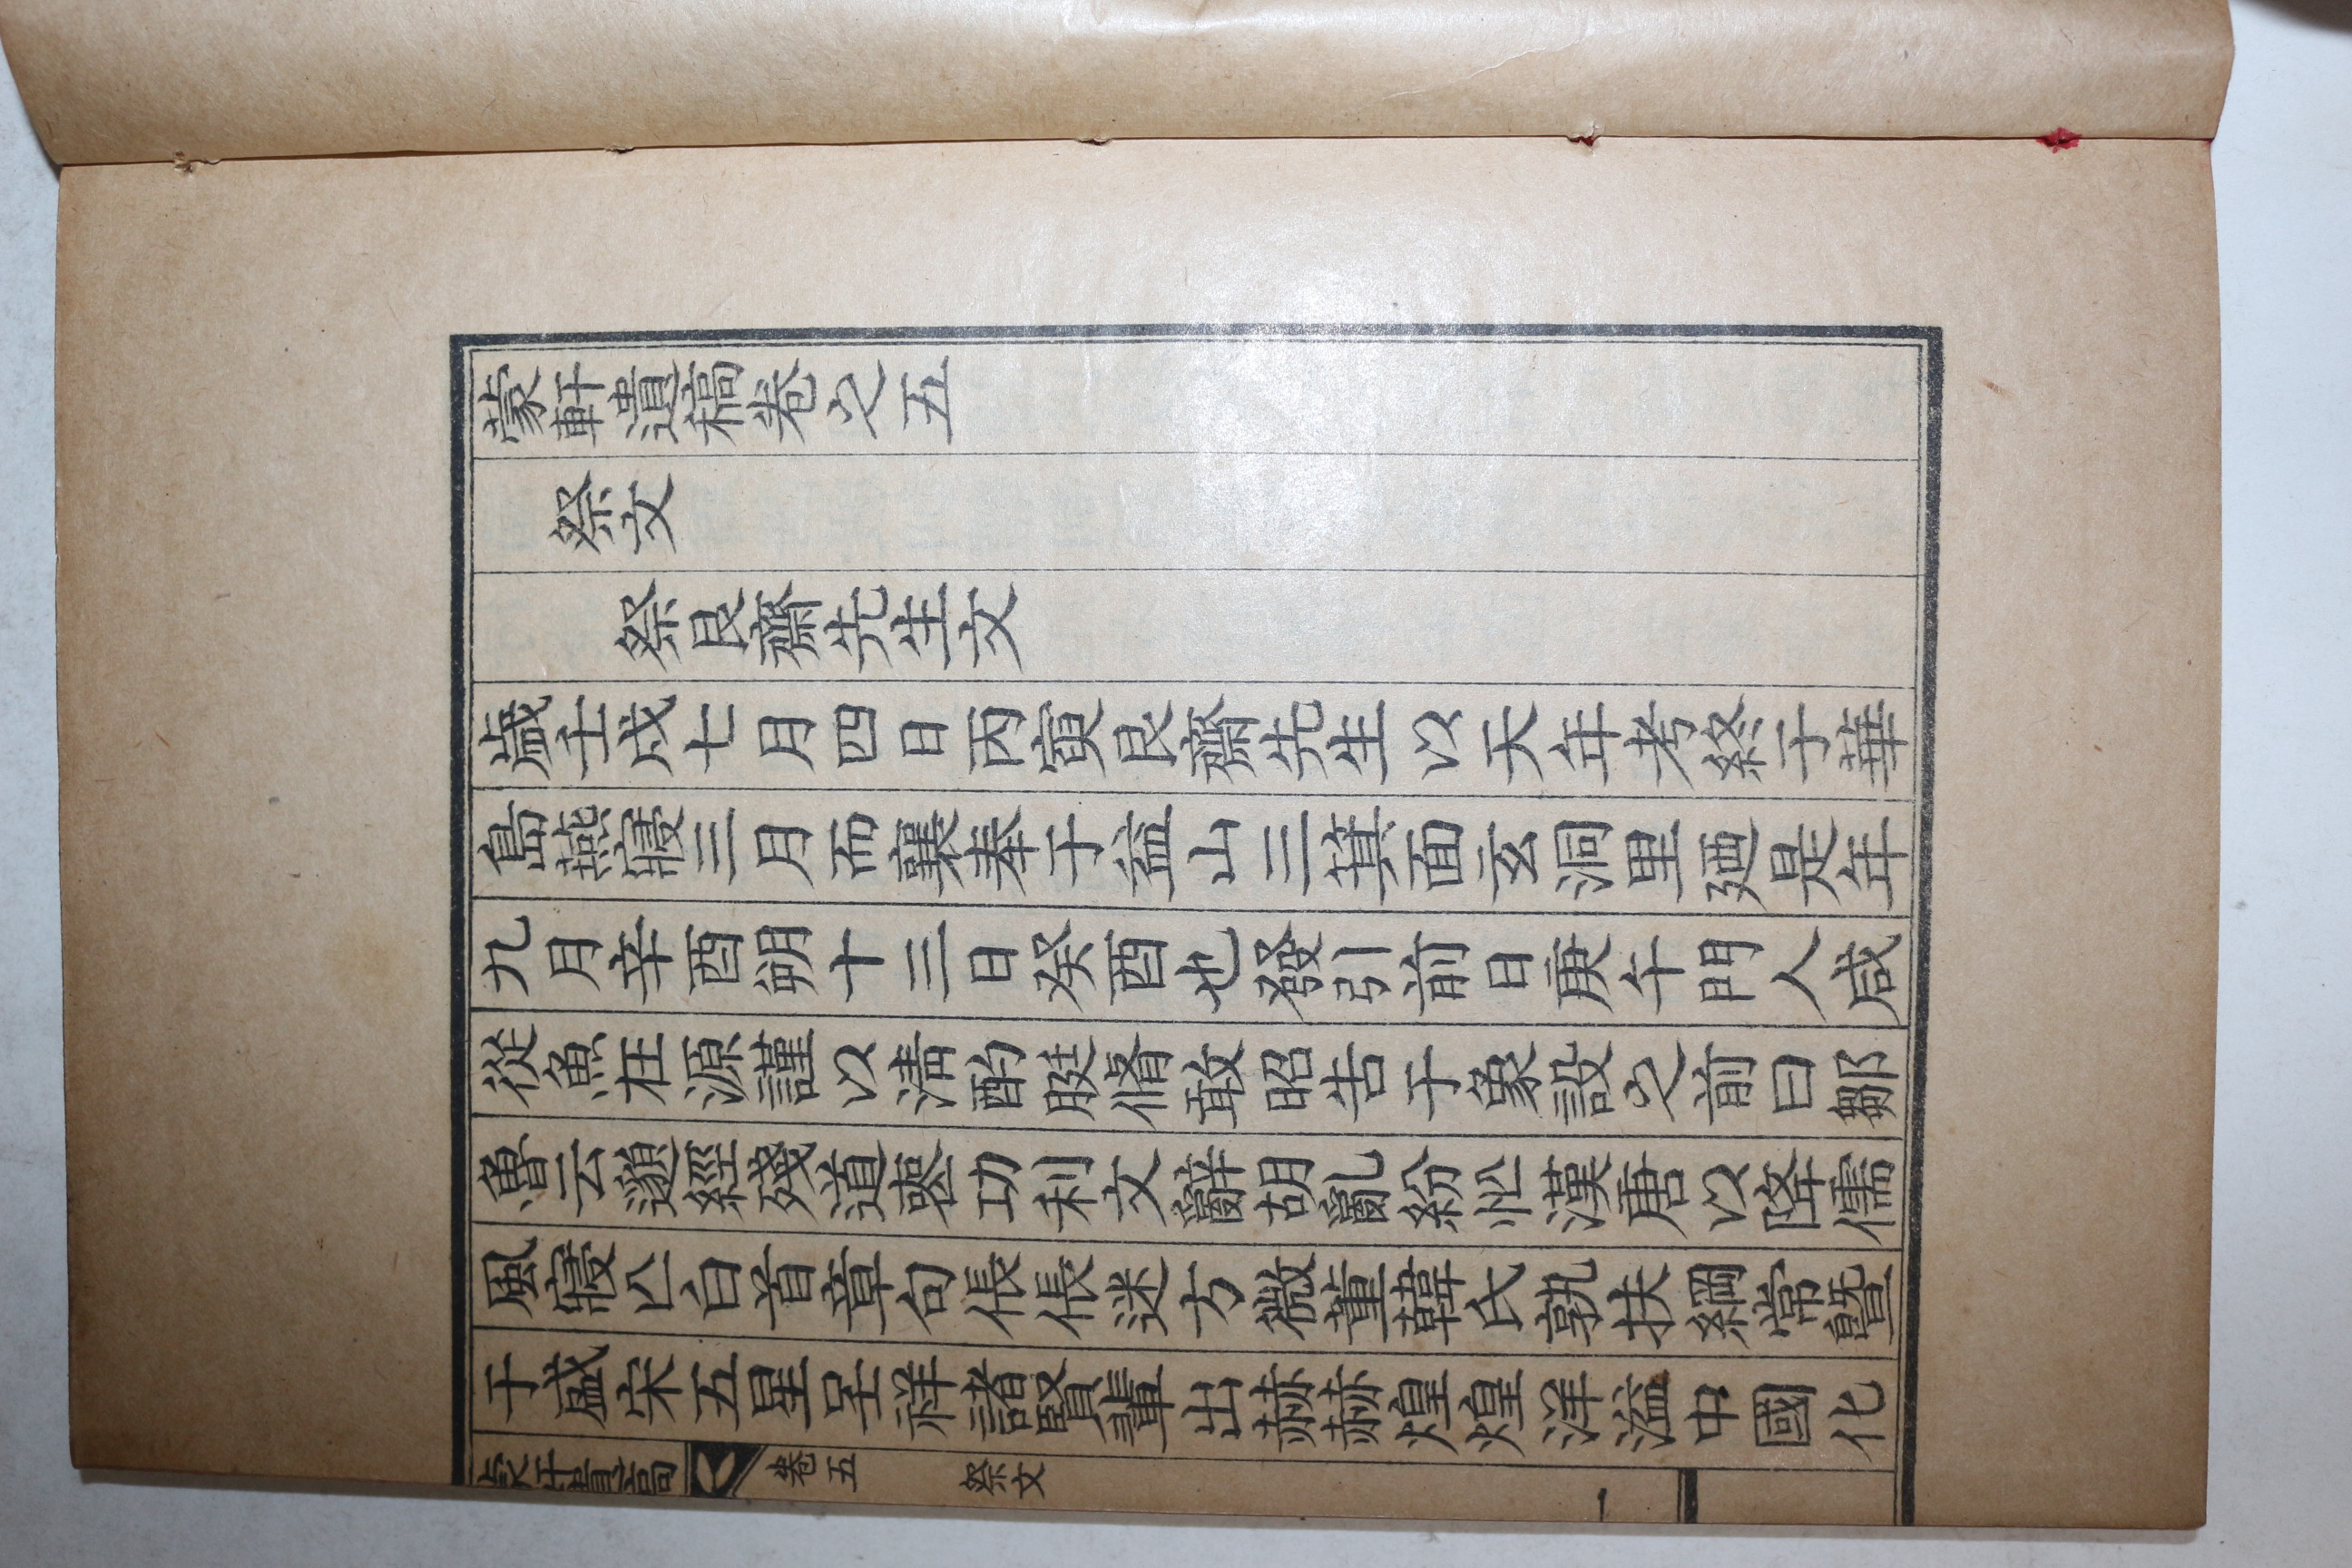 蒙軒遺稿卷之五
祭文
祭艮齋先生文
歲壬戌七月四日丙寅艮齋先生以天年考終于華
島燕寢三月而襄奉于益山三箕面玄洞里廼是年
九月辛酉朔十三日癸酉也發引前日庚午門人咸
從魚在源謹以淸酌脡脩敢昭告于象設之前曰鄒
魯云邈經殘道喪功利文辭胡亂紛恾漢唐以降儒
風寢亾白首章句倀倀迷方微董韓氏孰扶綱常曁
于盛宋五星呈祥諸賢輩出赫赫煌煌洋溢中國化
蒙軒遺稿 卷五 祭文 一